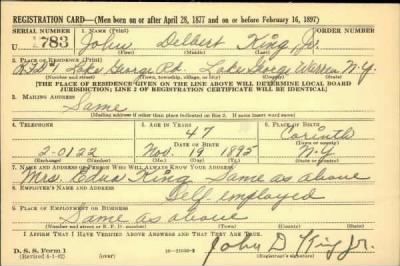 REGISTRATION CARD—(Men born on or after April 28, 1877 and on or before February 16, 1897)
SERIAL NUMBER 1. NAME (Print) ORDER NUMBER
U 2783 John Delbert King Jr.
(First) (Middle) (Last)
2. PLACE OF RESIDENCE (Print)
RFD #1 Lake George Rd. Lake George Warren N.Y.
(Number and street) (Town, township, village, or city) (County) (State)
[THE PLACE OF RESIDENCE GIVEN ON THE LINE ABOVE WILL DETERMINE LOCAL BOARD
JURISDICTION; LINE 2 OF REGISTRATION CERTIFICATE WILL BE IDENTICAL]
3. MAILING ADDRESS
Same
(Mailing address if other than place indicated on line 2. If same insert word same)
4. TELEPHONE 5. AGE IN YEARS 6. PLACE OF BIRTH
47 Corinth
DATE OF BIRTH (Town or county)
2-0122 Nov. 19 1895 N.Y.
(Exchange) (Number) (Mo.) (Day) (Yr.) (State or country)
7. NAME AND ADDRESS OF PERSON WHO WILL ALWAYS KNOW YOUR ADDRESS
Mrs. Edna King Same as above
8. EMPLOYER'S NAME AND ADDRESS
Self employed
9. PLACE OF EMPLOYMENT OR BUSINESS
Same as above
(Number and street or R. F. D. number) (Town) (County) (State)
I AFFIRM THAT I HAVE VERIFIED ABOVE ANSWERS AND THAT THEY ARE TRUE.
D. S. S. Form 1
(Revised 4-1-42) (over)
John D King Jr.
(Registrant's signature)